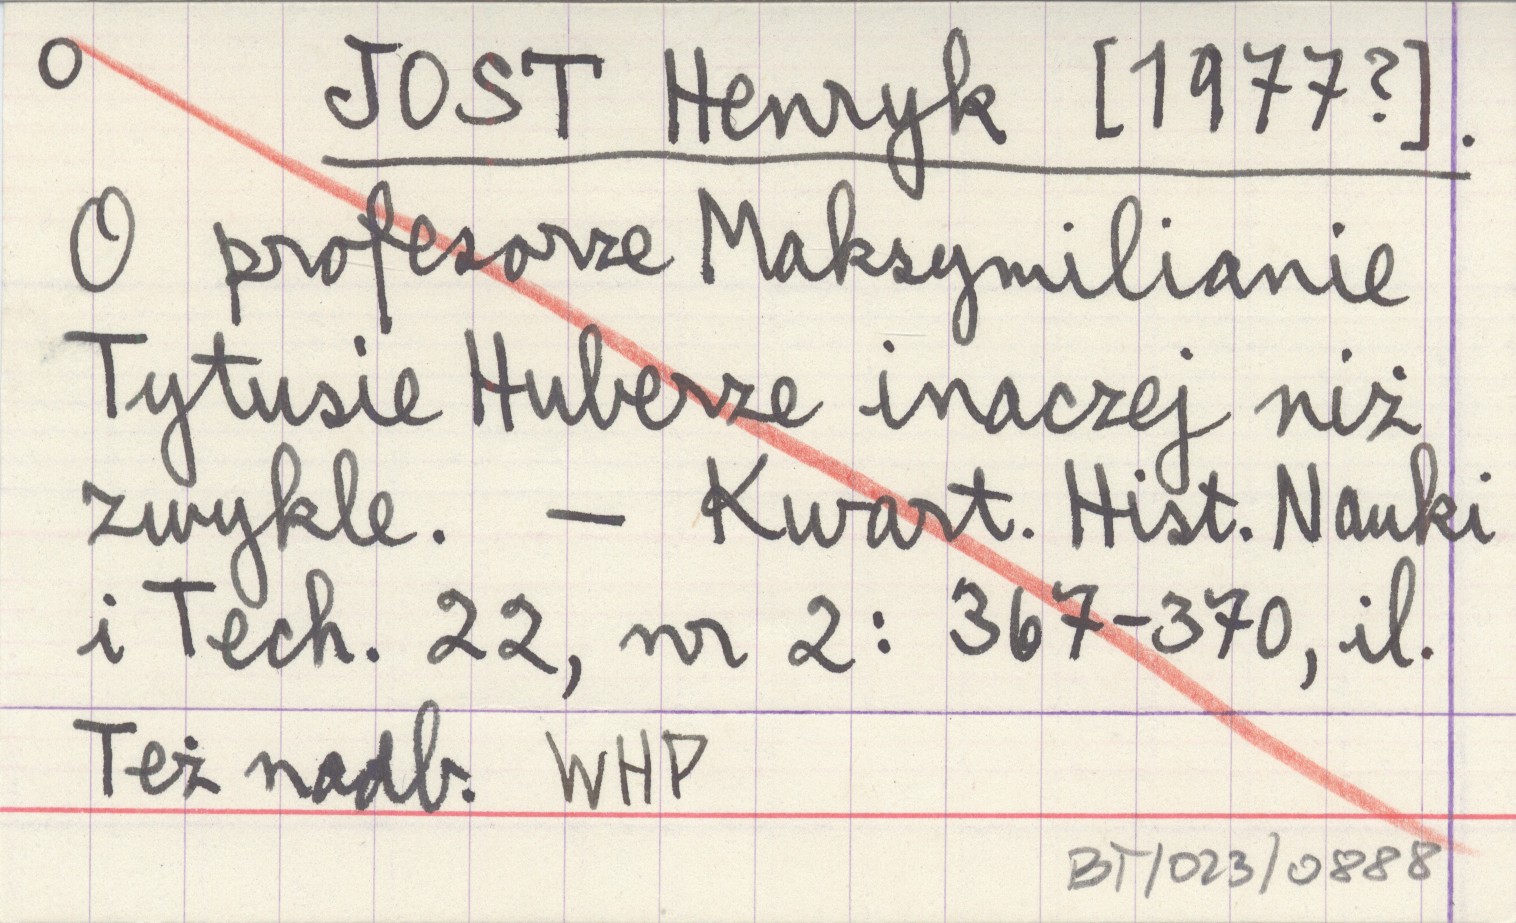 O JOST Henryk [1977?].
O profesorze Maksymilianie
Tytusie Huberze inaczej niż
zwykle. – Kwart. Hist. Nauki
i Tech. 22, nr 2: 367-370, il.
Też nadb. WHP
BT/023/0888